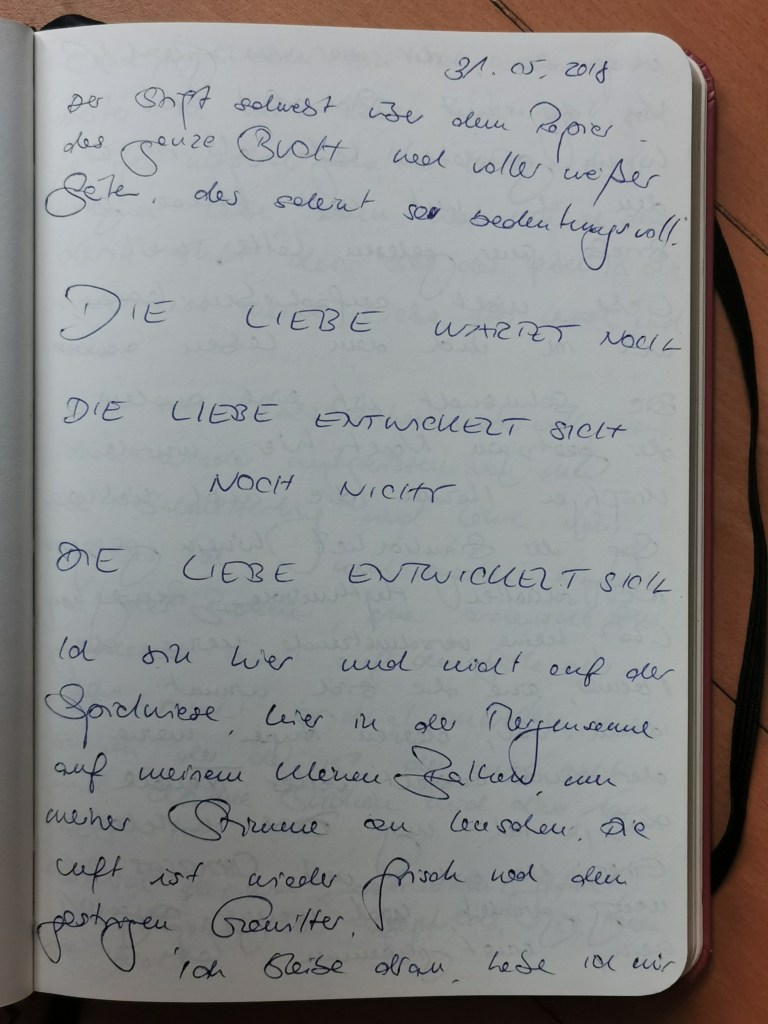 31. 05. 2018
Der Stift schwebt über dem Papier.
das ganze BUCH noch voller weißer
Seiten. das scheint so bedeutungsvoll.
DIE LIEBE WARTET NOCH
DIE LIEBE ENTWICKELT SICH
NOCH NICHT
DIE LIEBE ENTWICKELT SICH
Ich bin hier und nicht auf der
Spielwiese, hier in der Morgensonne
auf meinem kleinen Balkon, um
meiner Stimme zu lauschen. Die
Luft ist wieder frisch nach dem
gestrigen Gewitter.
Ich bleibe dran, habe ich mir